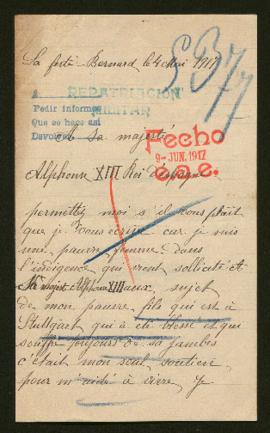 La ferté Bernard le 4 Mai 1917
S 377
A REPATRIACION
MILITAR
Pedir informes
Que se hace asi
Devolver
A sa majesté
Fecho
9-JUN. 1917
Alphonse XIII Roi d'Espagne
permettez moi s'il vous plait
que je vous écrive car je suis
une pauvre femme dans
l'indigence qui vient sollicité A
Sa majesté Alphonse XIII aux sujet
de mon pauvre fils qui est à
Stuttgart qui à été blessé et qui
souffre toujours de sa jambe
c'était mon seul soutien
pour m'aidé a vivre